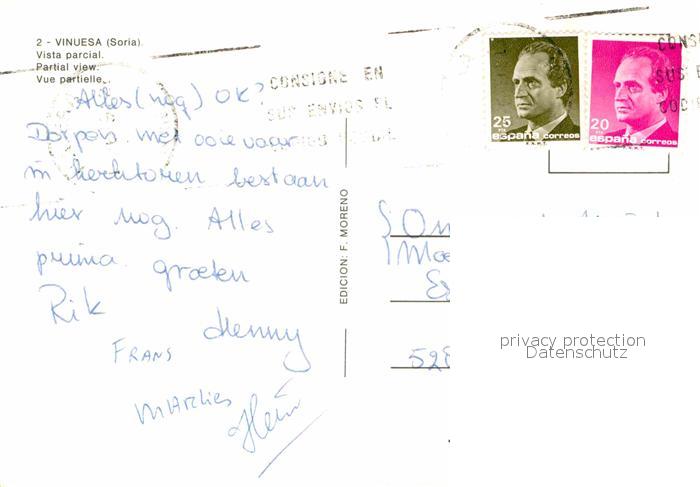 2 - VINUESA (Soria)
Vista parcial.
Partial view.
Vue partielle.
Alles (nog) OK?
Dorpen met ooievaar
in kerktoren bestaan
hier nog. Alles
prima. groeten
Rik
Henny
FRANS
Marlies
Hein
EDICION: F. MORENO
CONSIGNE EN
SUS ENVIOS EL
25
PTA
españa correos
F.N.M.T.
20
PTA
españa correos
F.N.M.T.
CONSI
SUS E
528
privacy protection
Datenschutz